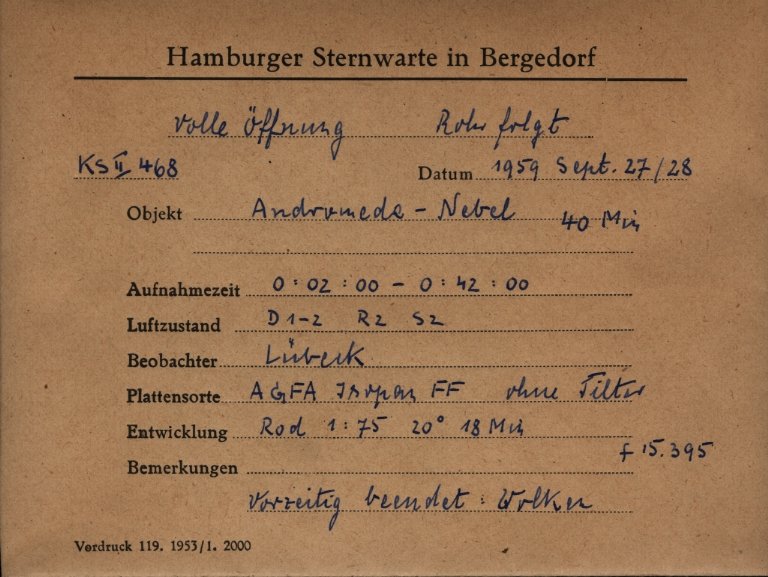 Hamburger Sternwarte in Bergedorf
Volle Öffnung Rohr folgt
KS II 468 Datum 1959 Sept. 27/28
Objekt Andromeda - Nebel 40 Min
Aufnahmezeit 0:02:00 - 0:42:00
Luftzustand D1-2 R2 S2
Beobachter Lübeck
Plattensorte AGFA Isopan FF ohne Filter
Entwicklung Rod 1:75 20° 18 Min
f 15.395
Bemerkungen
Vorzeitig beendet: Wolken
Vordruck 119. 1953/1. 2000